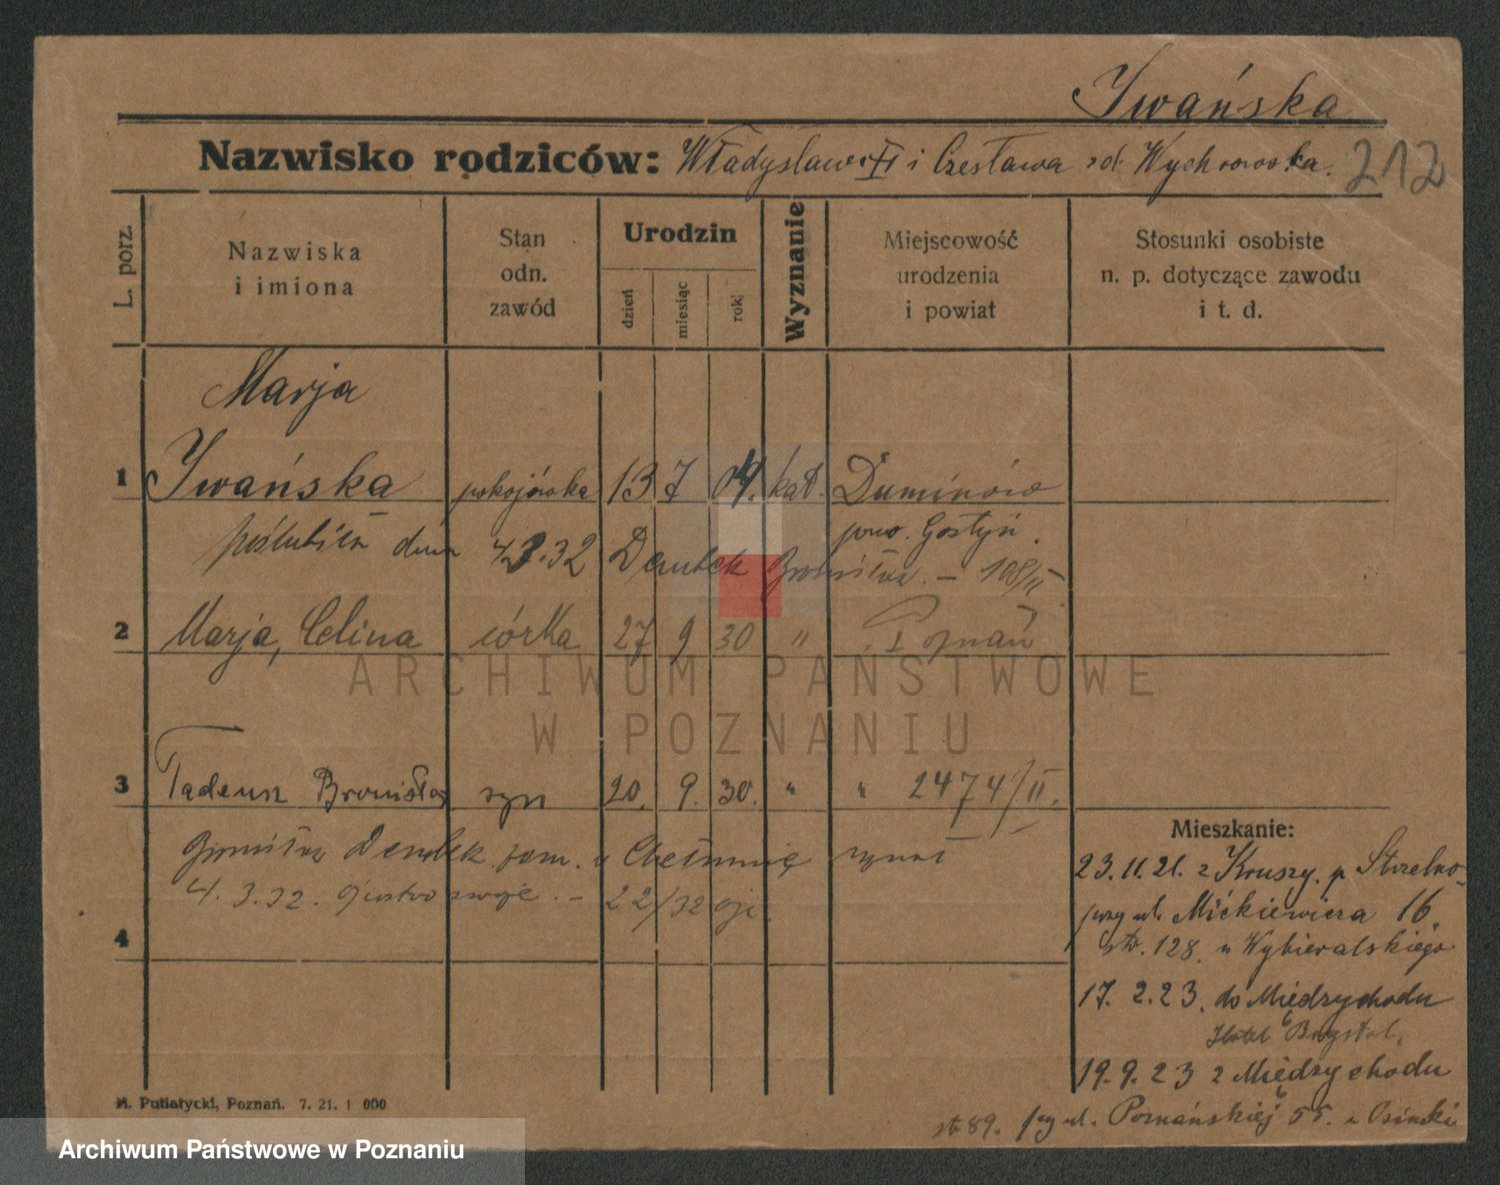 Iwańska
Nazwisko rodziców: Władysław i Czesława z d. 212
L. porz.
Nazwiska i imiona
Stan odn. zawód
Urodzin
dzień miesiąc rok
Wyznanie
Miejscowość urodzenia i powiat
Stosunki osobiste n. p. dotyczące zawodu i t. d.
Marja
1 Iwańska pokojówka 13 7 04. kat. Duminowo
pow. Gostyń.
poślubiła dnia 4.3.32 Bronisław. – 108/II
2 Marja, Celina córka 27 9 30 " Poznań
ARCHIWUM PAŃSTWOWE
W POZNANIU
3 Tadeusz Bronisław syn 20. 9. 30. " " 2474/II.
Bronisław zam. w Chełmnie uznał
4. 3. 32. ojcostwo swoje. – 22/32
4
Mieszkanie:
23. 11. 21. z Kruszy. p Strzelno
przy ul. Mickiewicza 16.
str. 128. u Wybieralskiego
17. 2. 23. do Międzychodu
Hotel Brystol.
19. 9. 23 z Międzychodu
str 89. przy ul. Poznańskiej 55. u Osinski
M. Putiatycki, Poznań. 7. 21. 1 000
Archiwum Państwowe w Poznaniu